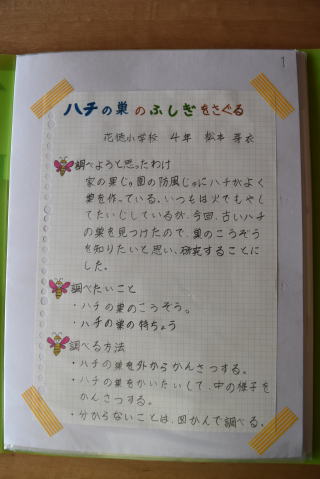 1
ハチの巣のふしぎをさぐる
花徳小学校 4年 松本 芽衣
調べようと思ったわけ
家の果じゅ園の防風じゅにハチがよく
巣を作っている。いつもは火でもやし
てたいじしているが、今回、古いハチ
の巣を見つけたので、巣のこうぞう
を知りたいと思い、研究することに
した。
調べたいこと
・ハチの巣のこうぞう。
・ハチの巣の特ちょう
調べる方法
・ハチの巣を外からかんさつする。
・ハチの巣をかいたいして、中の様子を
かんさつする。
・分からないことは、図かんで調べる。